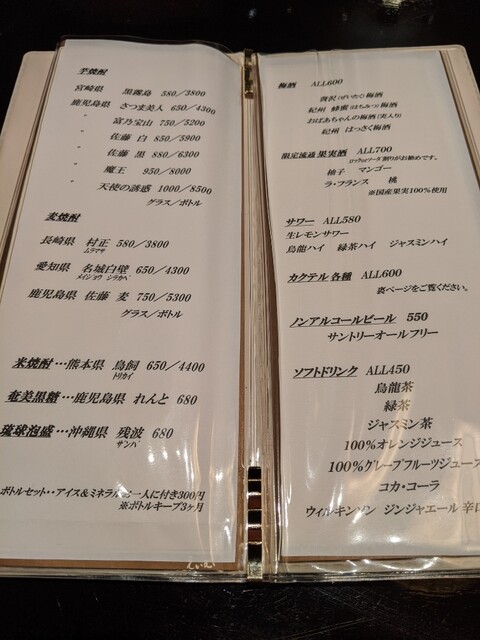 芋焼酎
宮崎県 黒霧島 580／3800
鹿児島県 さつま美人 650／4300
〃 富乃宝山 750／5200
〃 佐藤 白 850／5900
〃 佐藤 黒 880／6300
〃 魔王 950／8000
〃 天使の誘惑 1000／8500
グラス／ボトル
麦焼酎
長崎県 村正 580／3800
ムラマサ
愛知県 名城白壁 650／4300
メイジョウ シラカベ
鹿児島県 佐藤 麦 750／5300
グラス／ボトル
米焼酎…熊本県 鳥飼 650／4400
トリカイ
奄美黒糖…鹿児島県 れんと 680
琉球泡盛…沖縄県 残波 680
ザンパ
ボトルセット・・アイス＆ミネラル お一人に付き300円
※ボトルキープ3ヶ月
梅酒 ALL600
贅沢(ぜいたく)梅酒
紀州 蜂蜜(はちみつ)梅酒
おばあちゃんの梅酒(実入り)
紀州 はっさく梅酒
限定流通 果実酒 ALL700
ロックorソーダ割りがお勧めです。
柚子 マンゴー
ラ・フランス 桃
※国産果実100％使用
サワー ALL580
生レモンサワー
烏龍ハイ 緑茶ハイ ジャスミンハイ
カクテル各種 ALL600
裏ページをご覧ください。
ノンアルコールビール 550
サントリーオールフリー
ソフトドリンク ALL450
烏龍茶
緑茶
ジャスミン茶
100％オレンジジュース
100％グレープフルーツジュース
コカ・コーラ
ウィルキンソン ジンジャエール 辛口